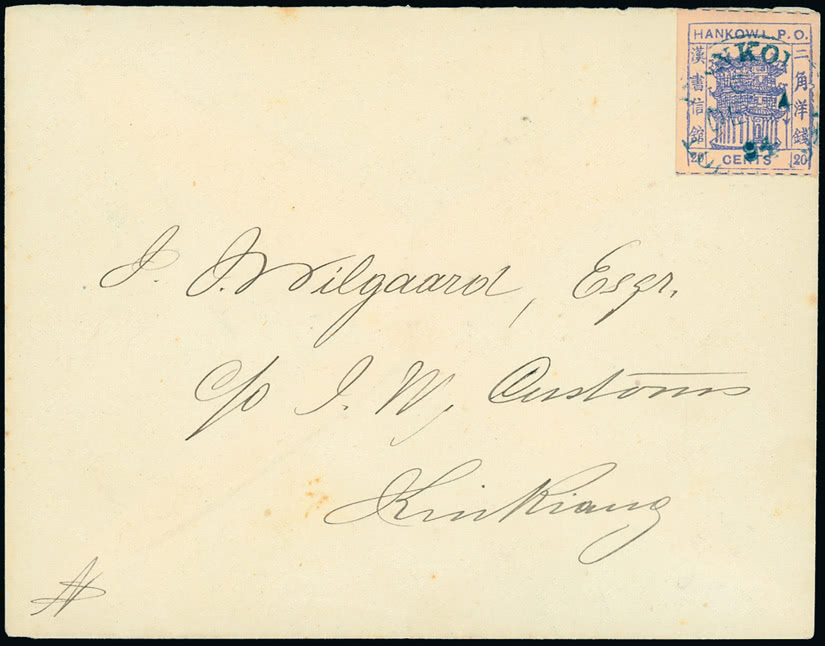 HANKOW L. P. O.
漢書信館
二角洋錢
20 CENTS 20
94
J. J. Wilgaard, Esqr.
c/o I. M. Customs
KiuKiang